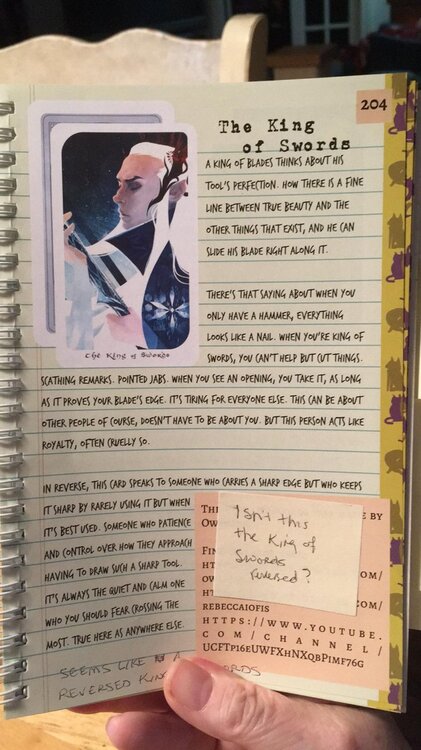 204
The King
of Swords
A KING OF BLADES THINKS ABOUT HIS
TOOL'S PERFECTION. HOW THERE IS A FINE
LINE BETWEEN TRUE BEAUTY AND THE
OTHER THINGS THAT EXIST, AND HE CAN
SLIDE HIS BLADE RIGHT ALONG IT.
THERE'S THAT SAYING ABOUT WHEN YOU
ONLY HAVE A HAMMER, EVERYTHING
LOOKS LIKE A NAIL. WHEN YOU'RE KING OF
SWORDS, YOU CAN'T HELP BUT CUT THINGS.
The King of Swords
SCATHING REMARKS. POINTED JABS. WHEN YOU SEE AN OPENING, YOU TAKE IT, AS LONG
AS IT PROVES YOUR BLADE'S EDGE. IT'S TIRING FOR EVERYONE ELSE. THIS CAN BE ABOUT
OTHER PEOPLE OF COURSE, DOESN'T HAVE TO BE ABOUT YOU. BUT THIS PERSON ACTS LIKE
ROYALTY, OFTEN CRUELLY SO.
IN REVERSE, THIS CARD SPEAKS TO SOMEONE WHO CARRIES A SHARP EDGE BUT WHO KEEPS
IT SHARP BY RARELY USING IT BUT WHEN
IT'S BEST USED. SOMEONE WHO PATIENCE
AND CONTROL OVER HOW THEY APPROACH
HAVING TO DRAW SUCH A SHARP TOOL.
IT'S ALWAYS THE QUIET AND CALM ONE
WHO YOU SHOULD FEAR CROSSING THE
MOST. TRUE HERE AS ANYWHERE ELSE.
Isn't this
the King of
Swords
reversed?
BY
COM/
COM/
REBECCAIOFIS
HTTPS://WWW.YOUTUBE.
COM/CHANNEL/
UCFTP16EUWFXHNXQBPIMF76G
SEEMS LIKE A
REVERSED